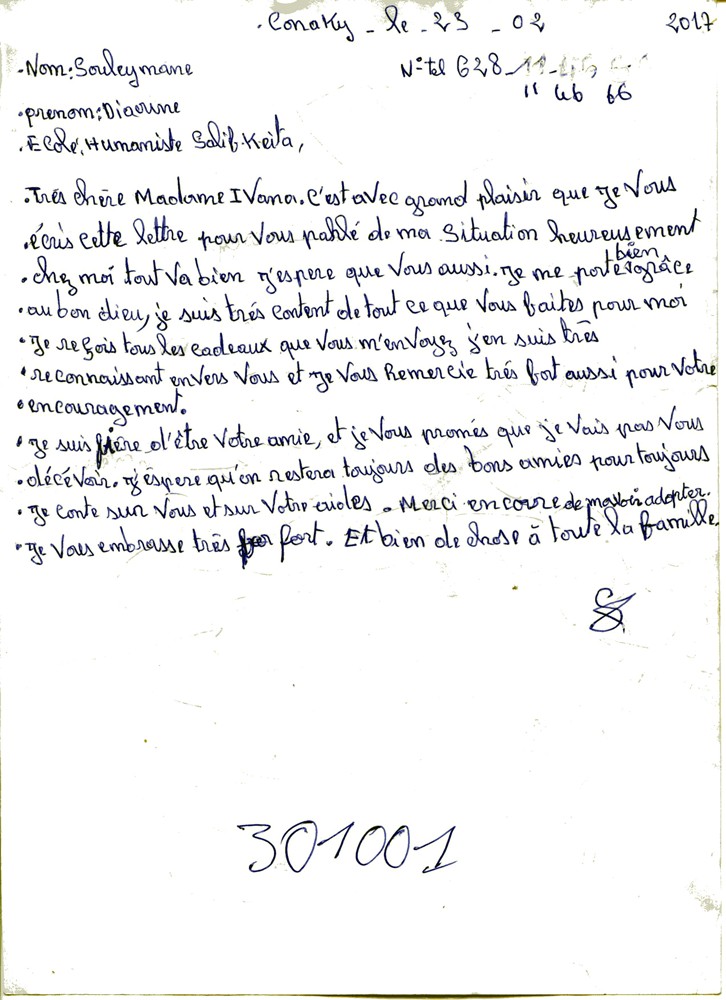 . Conaky - le - 23 - 02 2017
. Nom: Souleymane N° tel 628
11 46 66
. prenom: Diaoune
. Ecole, Humaniste Salif. Keita,
. Trés chère Madame IVana. C'est avec grand plaisir que Je Vous
. écris cette lettre pour Vous pahlé de ma Situation heureusement
bien
. chez moi tout Va bien j'espere que Vous aussi. Je me porte grâce
. au bon dieu, je suis trés content de tout ce que Vous faites pour moi
. Je reçois tous les cadeaux que Vous m'envoyez j'en suis très
. reconnaissant enVers Vous et Je Vous Remercie trés fort aussi pour Votre
. encouragement.
. Je suis fière d'être Votre amie, et je Vous promés que je Vais pas Vous
. décévoir. J'éspere qu'on restera toujours des bons amies pour toujours
. Je conte sur Vous et sur Votre aides. Merci encorre de mavoir adopter.
. Je Vous embrasse très fort. Et bien de chose à toute la famille.
301001